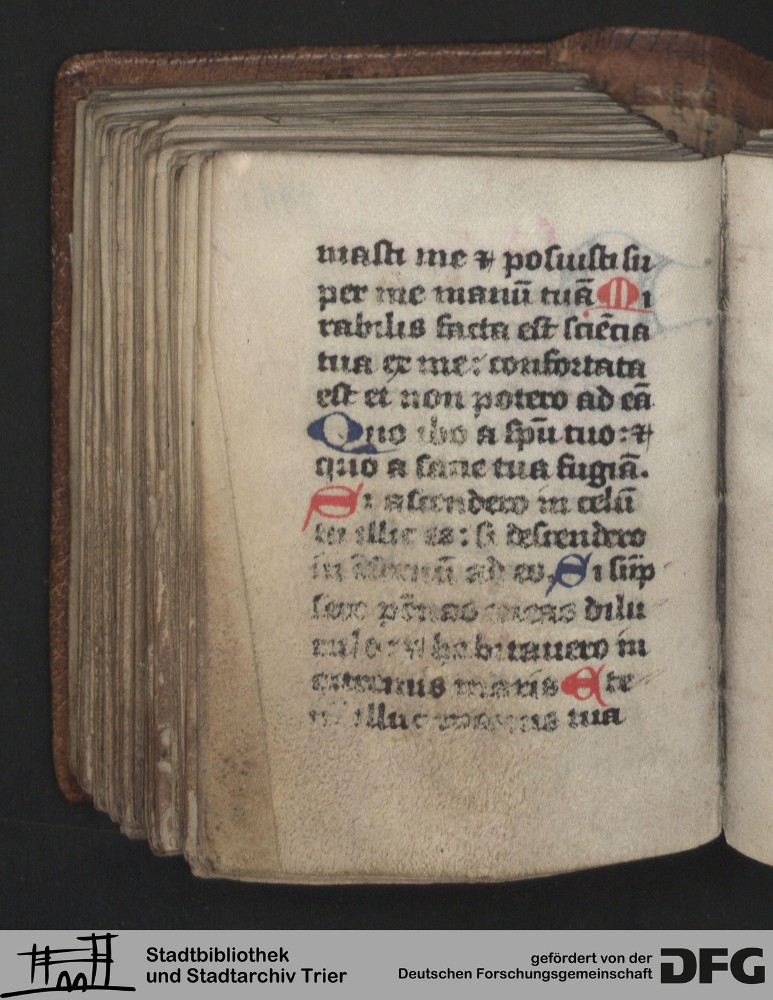 masti me ⁊ posuisti su
per me manū tuā Mi
rabilis facta est sciēcia
tua ex me: confortata
est et non potero ad eā
Quo ibo a spū tuo: ⁊
quo a facie tua fugiā.
Si ascendero in celū
tu illic es: si descendero
in ad es, Si sūp
sero pēnas meas dilu
culo: ⁊ habitauero in
extremis maris Ete
illuc manus tua
Stadtbibliothek
und Stadtarchiv Trier
gefördert von der
Deutschen Forschungsgemeinschaft
DFG